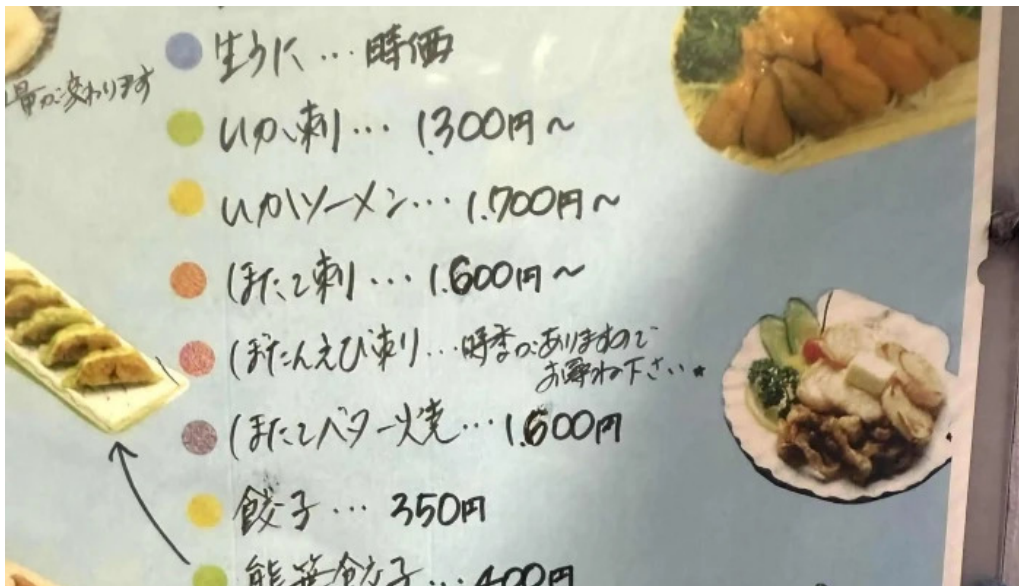 生うに…時価
量が変わります
いか刺… 1.300円～
いかソーメン… 1.700円～
ほたて刺… 1.600円～
ぼたんえび刺… 時季がありますので
お尋ね下さい★
ほたてバター焼… 1.600円
餃子… 350円
熊笹餃子… 400円